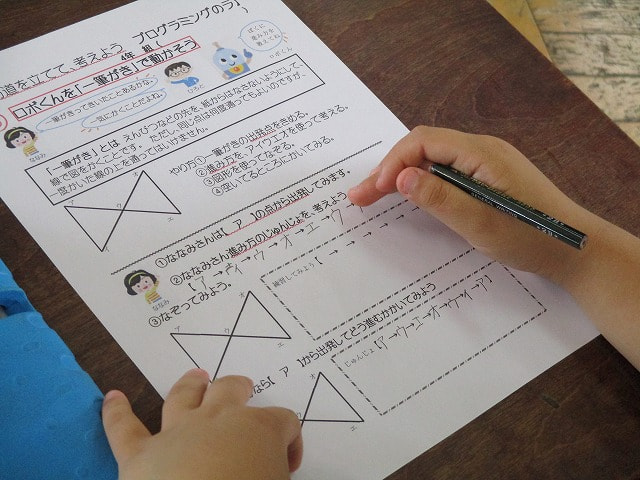 道を立てて 考えよう プログラミングのう
4年 組(
ロボくんを「一筆がき」で動かそう
一筆がきってきいたことあるかな。
一気にかくことだよね。
ぼくに
進み方を
教えてね
ななみ
ひろと
ロボくん
「一筆がき」とは、えんぴつなどの先を、紙からはなさないようにして、
線で図をかくことです。ただし、同じ点は何度通ってもよいのですが、
一度かいた線の上を通ってはいけません。
やり方①一筆がきの出発点をきめる。
②進み方を、アイウエオを使って考える。
③図形を使ってなぞる。
④空いてるところにかいてみる。
ア
オ
イ
ウ
エ
①ななみさんは【 ア 】の点から出発してみます。
②ななみさん進み方のじゅんじょを、考えよう
【ア→イ→ウ→オ→エ→ウ→
ななみ
③なぞってみよう。
ア
オ
イ
ウ
エ
練習してみよう【 → → → → →
なら【 ア 】から出発してどう進むかかいてみよう
じゅんじょ【ア→ウ→エ→オ→ウ→イ→ア】
オ
エ